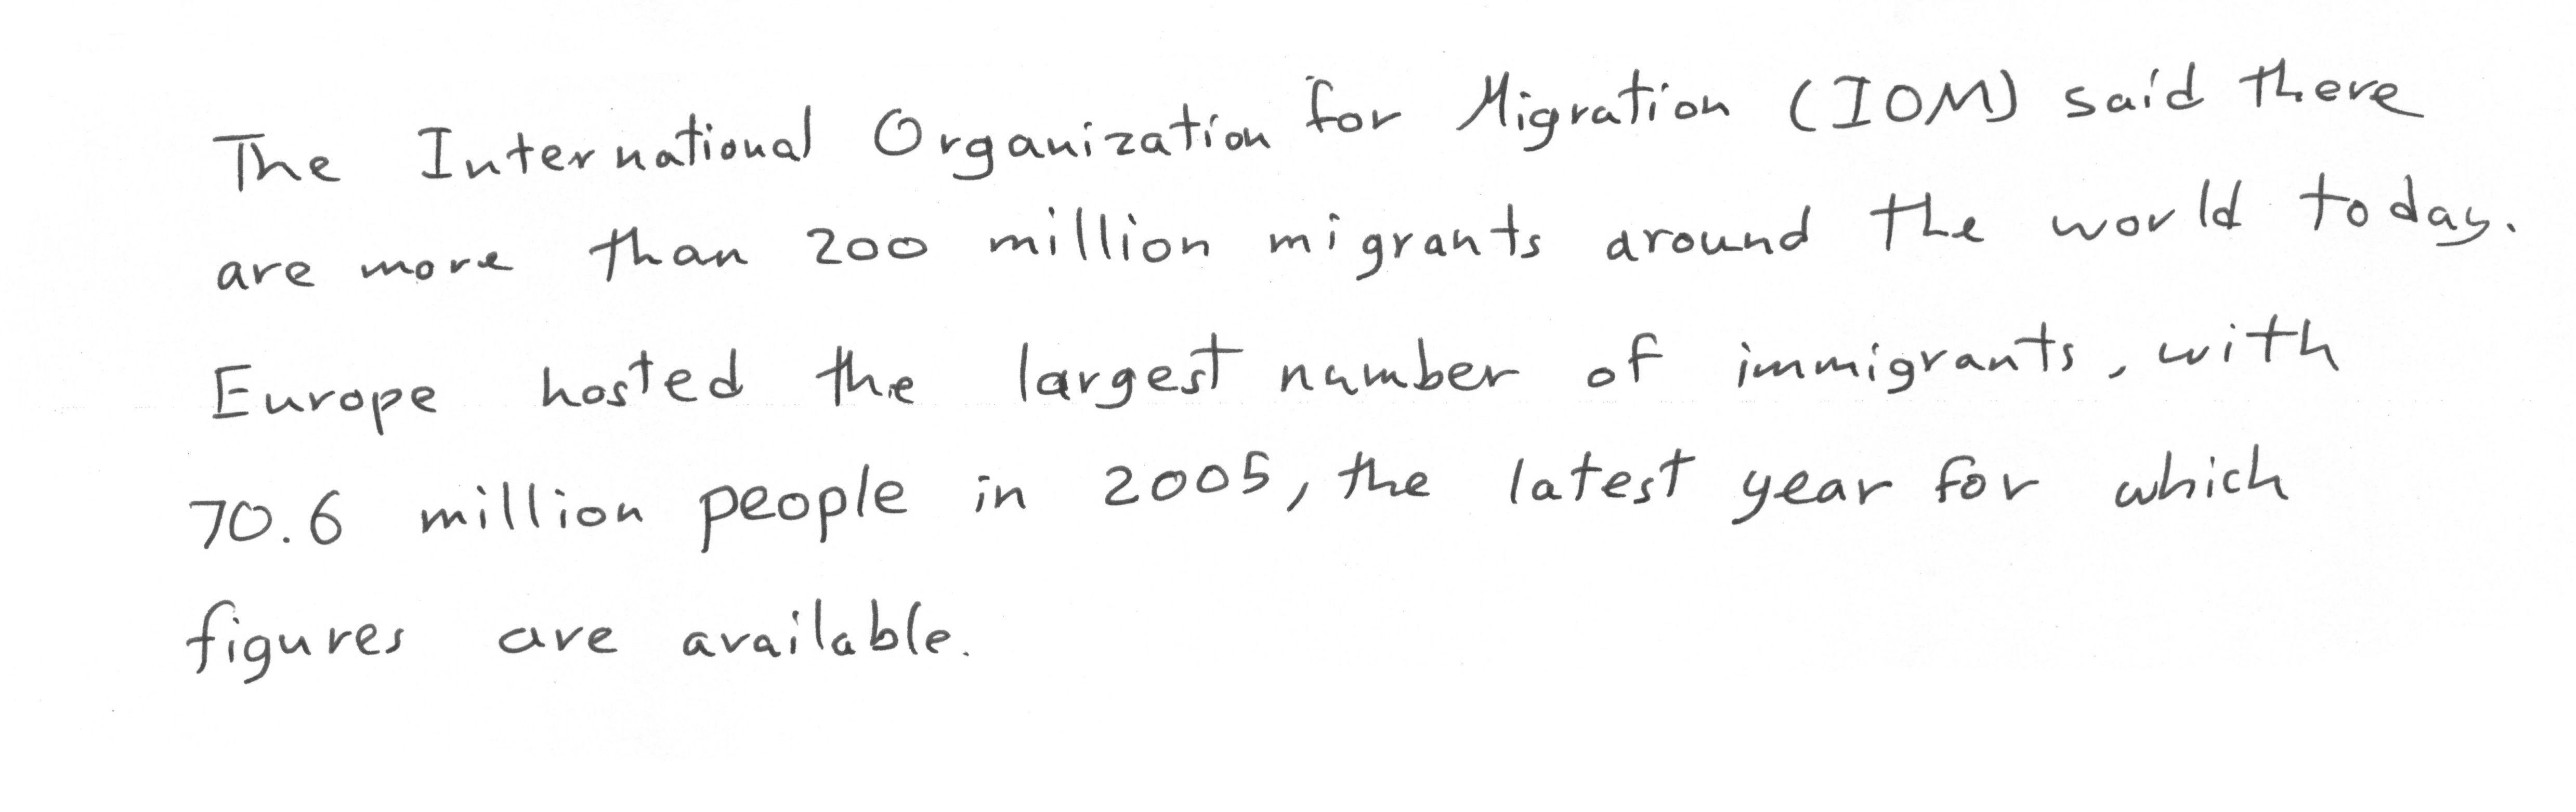 The International Organization for Migration (IOM) said there
are more than 200 million migrants around the world today.
Europe hosted the largest number of immigrants, with
70.6 million people in 2005, the latest year for which
figures are available.